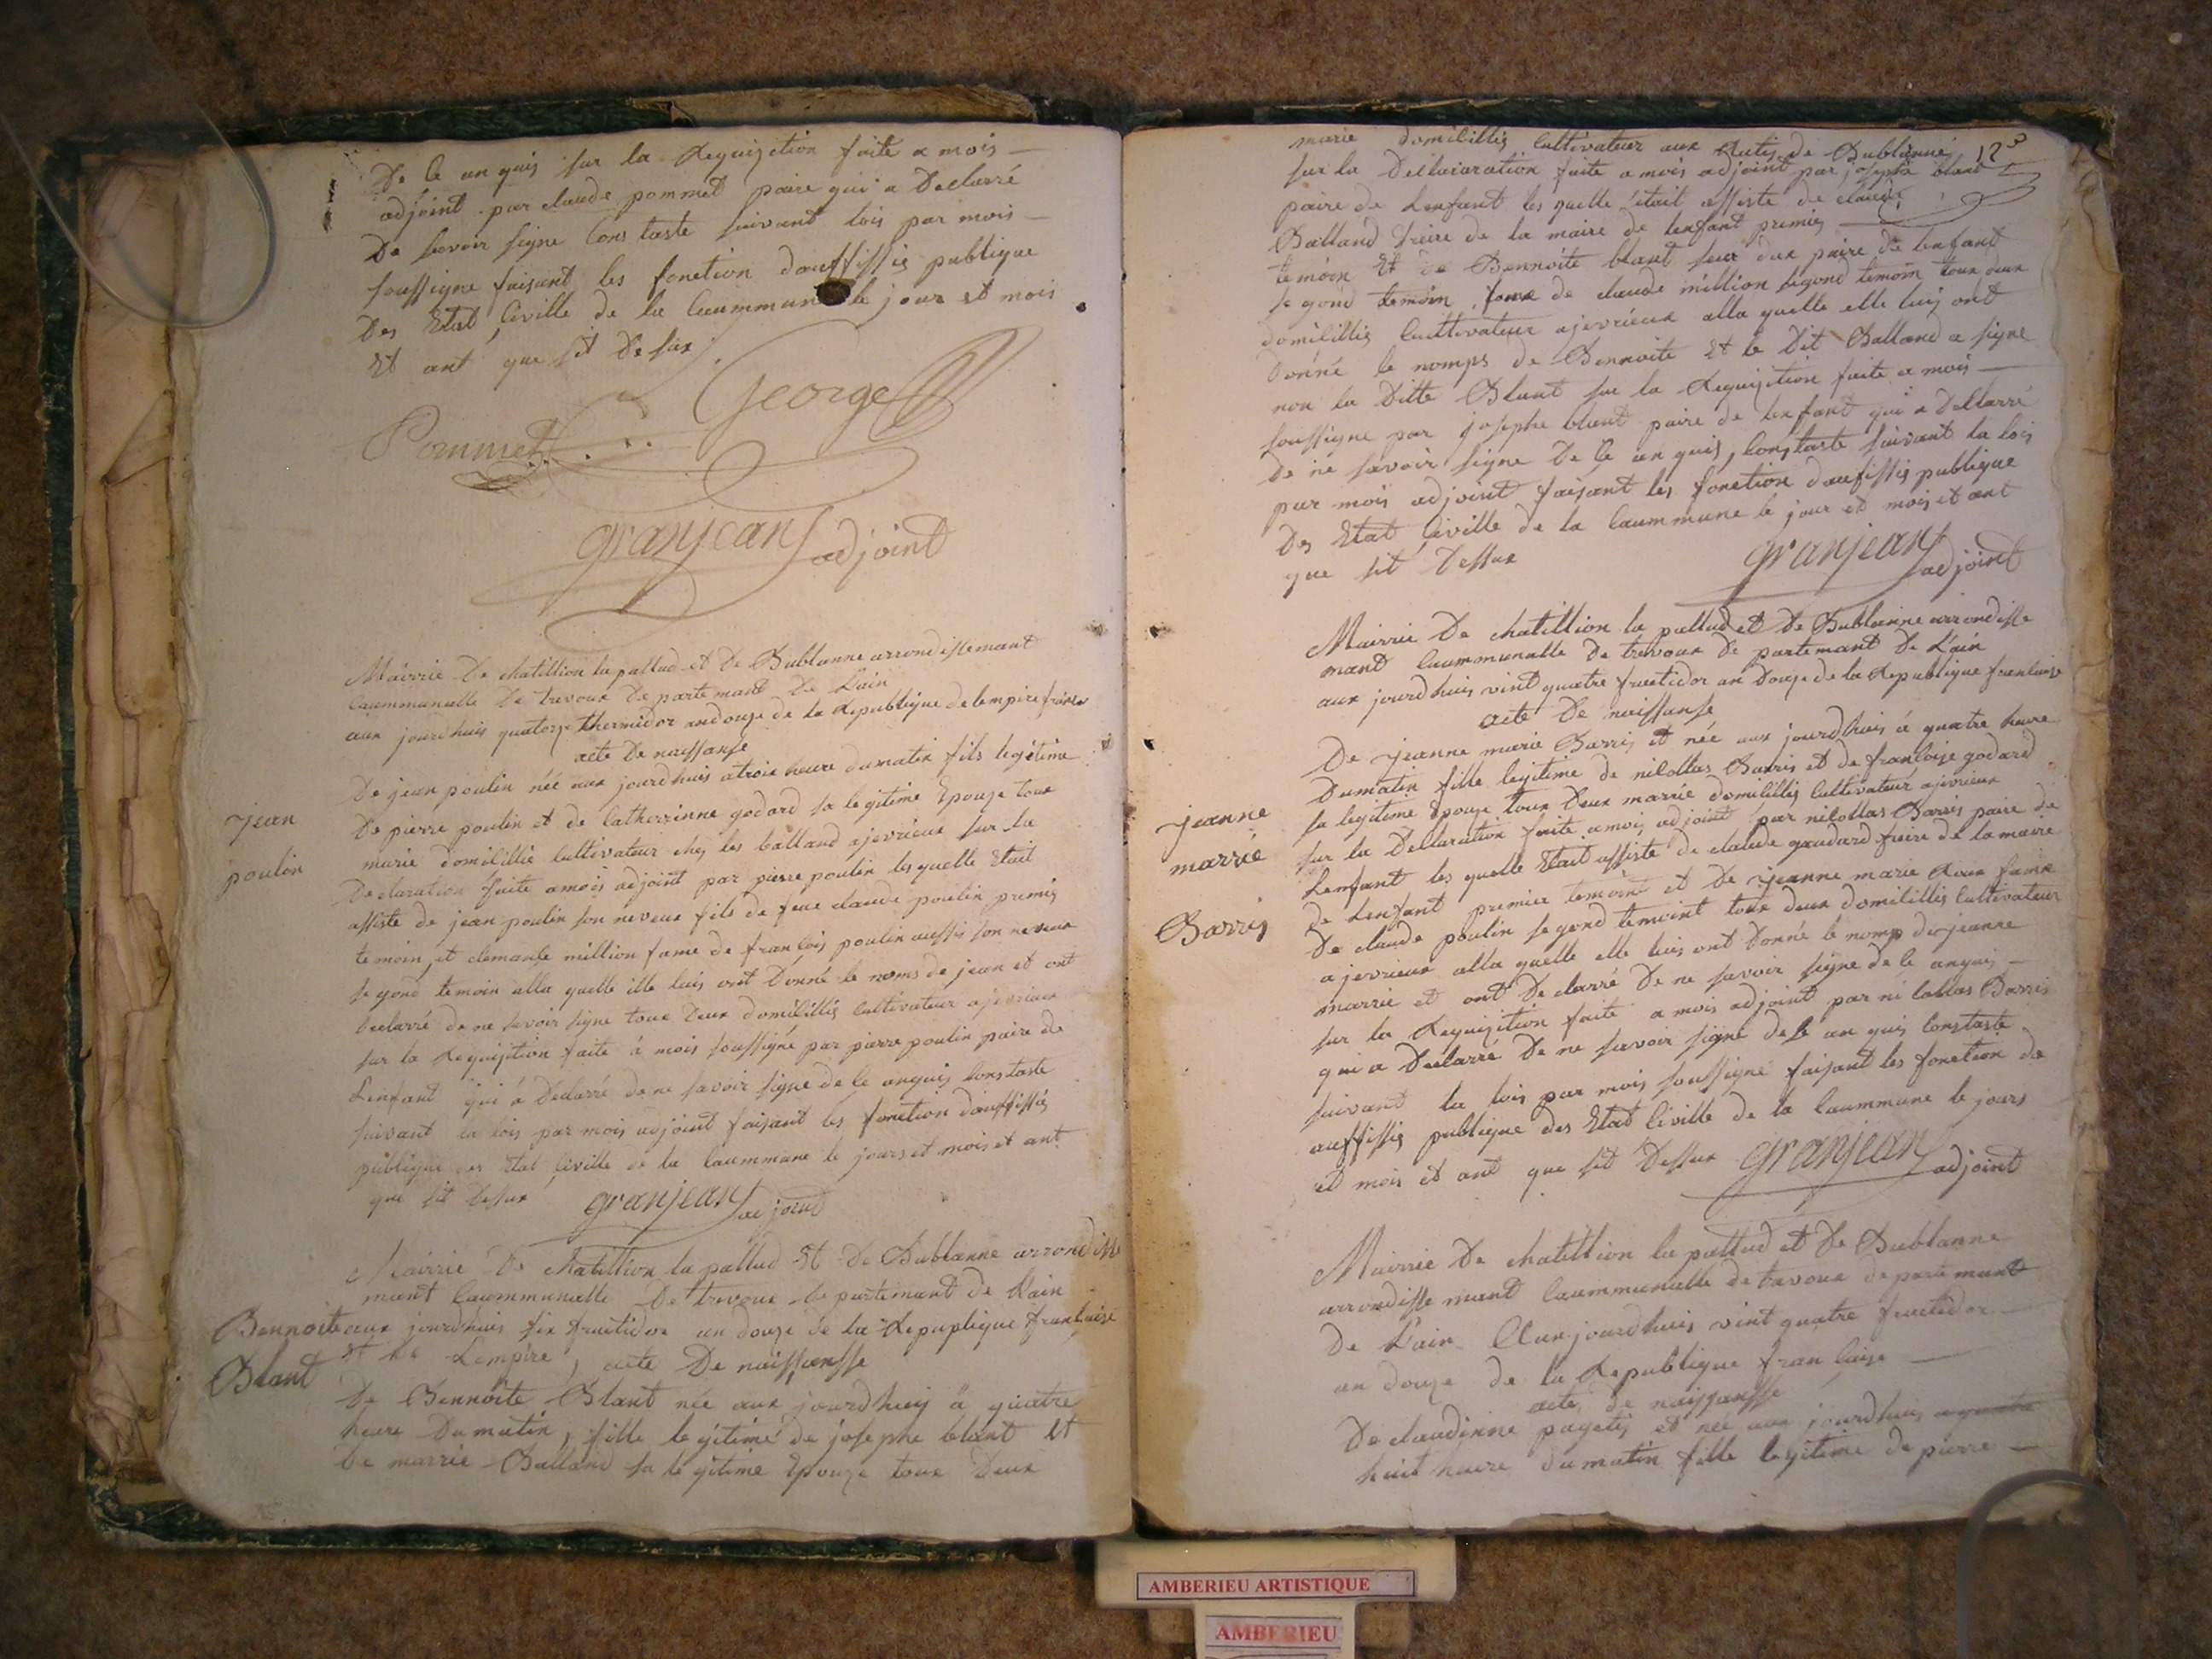 De ce an quis sur la Requizition faite a mois
adjoint par claude pommet paire qui a Declarré
De savoir signe Cons taste suivant lois par mois
soussigne faisant les fonction dauffissis publique
Des Etat Civille de la Caummune le jour et mois
Et ant que sit De sus
George
Pommet
granjean adjoint
Mairrie De chatillion la pallud et De Bublanne arrondissemant
Caummunalle De trevoux De partemant De Lain
aux jourdhuis quatorze thermidor an douze de la Republique de lempire franse
acte De naissanse
De jean poulin née aux jourdhuis a troix heure du matin fils legitime
De pierre poulin et de Catherrinne godard sa legitime Epouze toux
jean
poulin
marie domicillié Cultivateur chez les balland a jevrieux sur la
Declaration faite a mois adjoint par pierre poulin lesquelle Etait
assiste de jean poulin son neveux fils de feux claude poulin premis
temoin, et clemanse million fame de francois poulin aussis son neveux
segond temoin alla quelle ille luis ont Donné le noms de jean et ont
Declarré de ne savoir signe toux Deux domicillis Cultivateur a jevrieux
sur la Requizition faite à mois soussigné par pierre poulin paire de
Lenfant qui à Declarré de ne savoir signe de ce anquis Constaste
suivant la lois par mois adjoint faisant les fonction dauffissis
publique des Etat Civille de la Caummune le jours et mois et ant
que sit desux granjean adjoint
Mairrie De chatillion la pallud Et De Bublanne arrondisse
mant Caummunalle De trevoux De partemant de Lain
Bennoite
Blant
aux jourdhuis six fructidor an douze de la Republique francaise
Et de Lempire, acte De naissansse
De Bennoite Blant née aux jourdhuis à quatre
heure Du matin, fille legitime de josephe blant Et
De marrie Balland sa legitime Epouze toux Deux
marie domicillis Cultivateur aux de Bublanne 123
sur la Dellararation faite a mois adjoint par josephe blant
paire de Lenfant les quelle était assiste de claude
Balland freire de la maire de lenfant premis
temoin Et de Bennoite blant seur dux paire de lenfant
segond temoin, fame de claude million segond temoin toux deux
domicillis Cultivateur a jevrieux alla quelle elle luis ont
Donné le nomps de Bennoite Et le Dit Balland a signe
non la Ditte Blant sur la Requizition faite a mois
soussigne par josephe blant paire de lenfant qui a Dellarré
De ne savoir signe De Ce an quis, Constaste suivant la lois
par mois adjoint faisant les fonction daufissis publique
Des Etat Civille de la Caummune le jour et mois et ant
que sit Dessux granjean adjoint
Mairrie De chatillion la pallud et De Bublanne arrondisse
mant Caummunalle De trevoux De partemant De Lain
aux jourdhuis vint quatre fructidor an Douze de la Republique francaise
acte De naissanse
De jeanne marie Barris et née aux jourdhuis à quatre heure
Du matin fille legitime de nicollas Barris et de francoise godard
jeanne
marrie
Barris
sa legitime Epouze toux Deux marrie domicillis Cultivateur a jevrieux
sur la Dellaration faite a mois adjoint par nicollas Barris paire de
Lenfant les quelle Etait assiste de claude gaudard freire de la maire
de Lenfant premier temoint et De jeanne marie Roux fame
De claude poulin segond temoint toux deux domicillis Cultivateur
a jevrieux alla quelle elle luis ont Donné le nomp de jeanne
marrie et ont De clarré De ne savoir signe de ce anquis
sur la Requizition faite a mois adjoint par ni collas Barris
qui a Declarré De ne savoir signe de se an quis Constaste
suivant la lois par mois soussigne faisant les fonction de
auffissis publique des Etat Civille de la Caummune le jours
et mois et ant que sit Dessux granjean adjoint
Mairrie De chatillion la pallud et De Bublanne
arrondisse mant Caummunalle de trevoux departemant
De Lain Aux jourdhuis vint quatre fructidor
an douze de la Republique fran caise
acte de naissansse
De claudinne et née aux jourdhuis
huit heure du matin fille legitime de pierre
AMBERIEU ARTISTIQUE
AMBERIEU